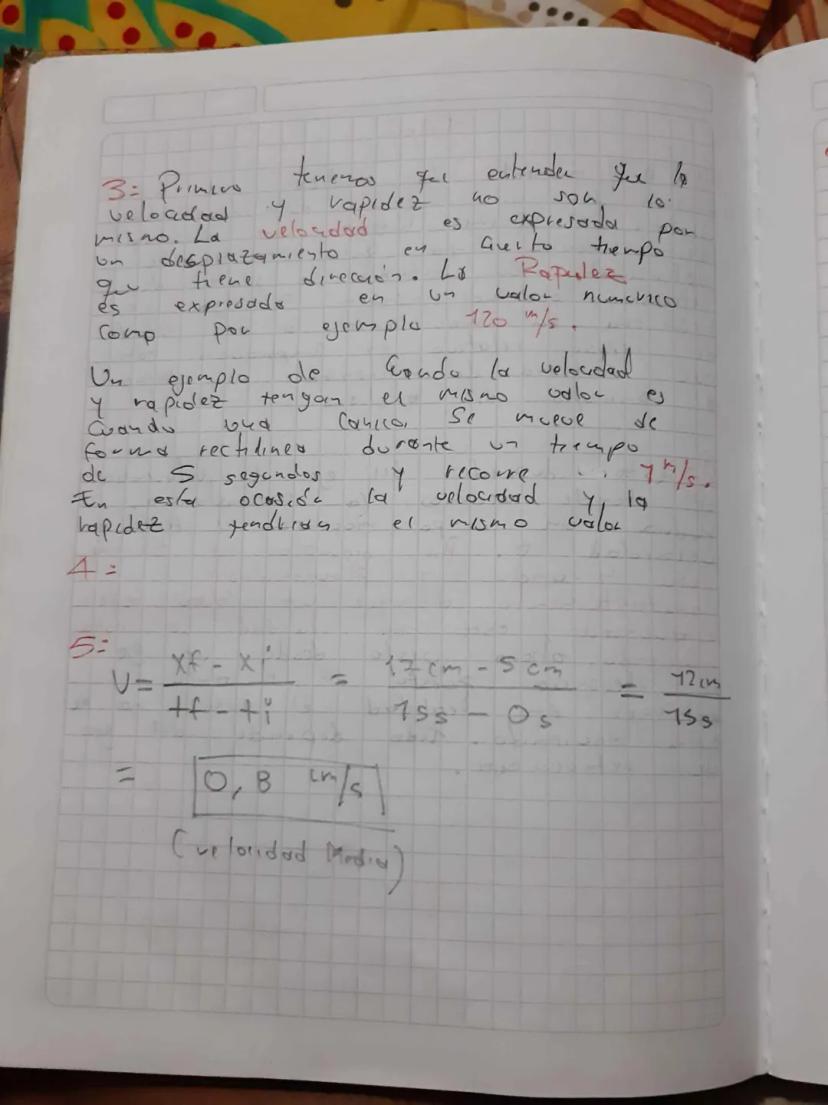 3: Primero tenemos que entender que la
velocidad y rapidez no son lo
mismo. La velocidad es expresada por
un desplazamiento en cierto tiempo
que tiene dirección. La Rapidez
es expresada en un valor numerico
Como por ejemplo 120 m/s.
Un ejemplo de Cuando la velocidad
y rapidez tengan el mismo valor es
Cuando una Canica, Se mueve de
forma rectilinea durante un tiempo
de 5 segundos y recorre 1 m/s.
En esta ocasión la velocidad y la
rapidez tendrian el mismo valor
4=
5:
V = xf - xi / tf - ti = 17 cm - 5 cm / 15s - 0s = 12cm / 15s
= 0,8 cm/s
(velocidad Media)